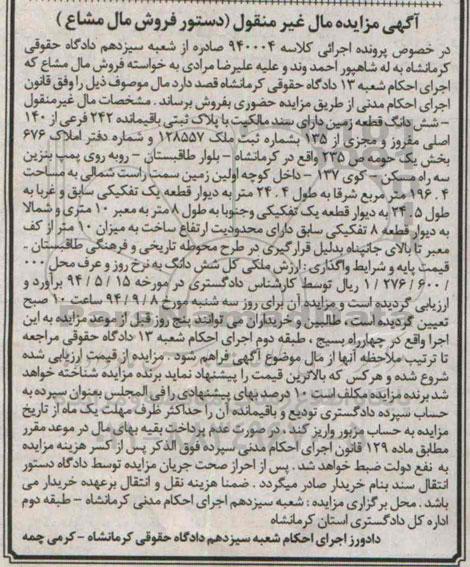 آگهی مزایده مال غیر منقول (دستور فروش مال مشاع )
در خصوص پرونده اجرائی کلاسه ۹۴۰۰۰۴ صادره از شعبه سیزدهم دادگاه حقوقی
کرمانشاه به له شاهپور احمد وند و علیه علیرضا مرادی به خواسته فروش مال مشاع که
اجرای احکام شعبه ۱۳ دادگاه حقوقی کرمانشاه قصد دارد مال موصوف ذیل را وفق قانون
اجرای احکام مدنی از طریق مزایده حضوری بفروش برساند . مشخصات مال غیرمنقول
– شش دانگ قطعه زمین دارای سند مالکیت با پلاک ثبتی باقیمانده ۲۴۲ فرعی از ۱۴۰
اصلی مفروز و مجزی از ۱۳۵ بشماره ثبت ملک ۱۲۸۵۵۷ و شماره دفتر املاک ۶۷۶
بخش یک حومه ص ۲۳۵ واقع در کرمانشاه – بلوار طاقبستان – روبه روی پمپ بنزین
سه راه مسکن – کوی ۱۳۷ – داخل کوچه اولین زمین سمت راست شمالی به مساحت
۱۹۶.۴ متر مربع شرقا به طول ۲۴.۴ متر به دیوار قطعه یک تفکیکی سابق و غربا به
طول ۲۴.۵ به دیوار قطعه یک تفکیکی وجنوبا به طول ۸ متر به معبر ۱۰ متری و شمالا
به دیوار قطعه ۸ تفکیکی سابق دارای محدودیت ارتفاع ساخت به میزان ۱۰ متر از کف
معبر تا بالای جانپناه بدلیل قرارگیری در طرح محوطه تاریخی و فرهنگی طاقبستان .
قیمت پایه و شرایط واگذاری : ارزش ملکی کل شش دانگ به نرخ روز و عرف محل ۰۰۰
/ ۶۰۰ / ۲۷۶ / ۱ ریال توسط کارشناس دادگستری در مورخه ۱۵ / ۵ / ۹۴ برآورد و
ارزیابی گردیده است و مزایده آن برای روز سه شنبه مورخ ۸ / ۹ / ۹۴ ساعت ۱۰ صبح
تعیین گردیده است . طالبین و خریداران می توانند پنج روز قبل از موعد مزایده به این
اجرا واقع در چهارراه بسیج ، طبقه دوم اجرای احکام شعبه ۱۳ دادگاه حقوقی مراجعه
تا ترتیب ملاحظه آنها از مال موضوع آگهی فراهم شود . مزایده از قیمت ارزیابی شده
شروع شده و هرکس که بالاترین قیمت را پیشنهاد نماید برنده مزایده شناخته خواهد
شد برنده مزایده مکلف است ۱۰ درصد بهای پیشنهادی را فی المجلس بعنوان سپرده به
حساب سپرده دادگستری تودیع و باقیمانده آن را حداکثر ظرف مهلت یک ماه از تاریخ
مزایده به حساب مزبور واریز کند . در صورت عدم پرداخت بقیه بهای مال در موعد مقرر
مطابق ماده ۱۲۹ قانون اجرای احکام مدنی سپرده فوق الذکر پس از کسر هزینه مزایده
به نفع دولت ضبط خواهد شد . پس از احراز صحت جریان مزایده توسط دادگاه دستور
انتقال سند بنام خریدار صادر میگردد . ضمنا هزینه نقل و انتقال برعهده خریدار می
باشد . محل برگزاری مزایده : شعبه سیزدهم اجرای احکام مدنی کرمانشاه – طبقه دوم
اداره کل دادگستری استان کرمانشاه
دادورز اجرای احکام شعبه سیزدهم دادگاه حقوقی کرمانشاه – کرمی چمه